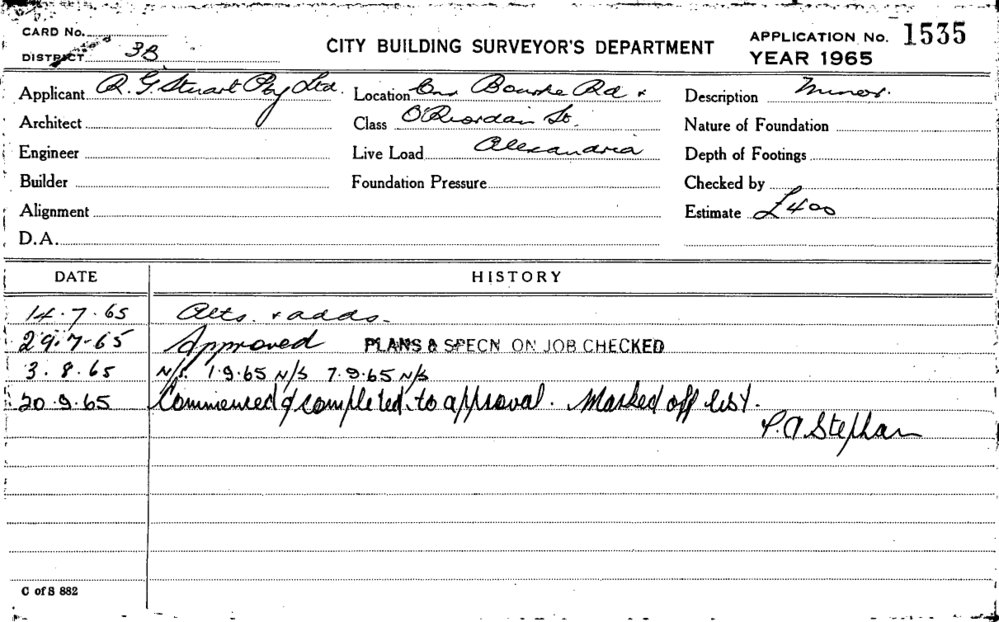 CARD No.
DISTRICT 3B
CITY BUILDING SURVEYOR'S DEPARTMENT
APPLICATION No. 1535
YEAR 1965
Applicant R. G Stuart Pty Ltd.
Architect
Engineer
Builder
Alignment
D.A.
Location Cnr Bourke Rd &
Class O'Riordan St.
Live Load Alexandria
Foundation Pressure
Description Minor.
Nature of Foundation
Depth of Footings
Checked by
Estimate £400
DATE HISTORY
14.7.65 Alts. & adds.
29.7-65 Approved PLANS & SPECN ON JOB CHECKED
3.8.65 N/S. 1.9.65 N/S 7.9.65 N/S
20.9.65 Commenced & completed to approval. Marked off list.
P.A Stephan
C of S 882